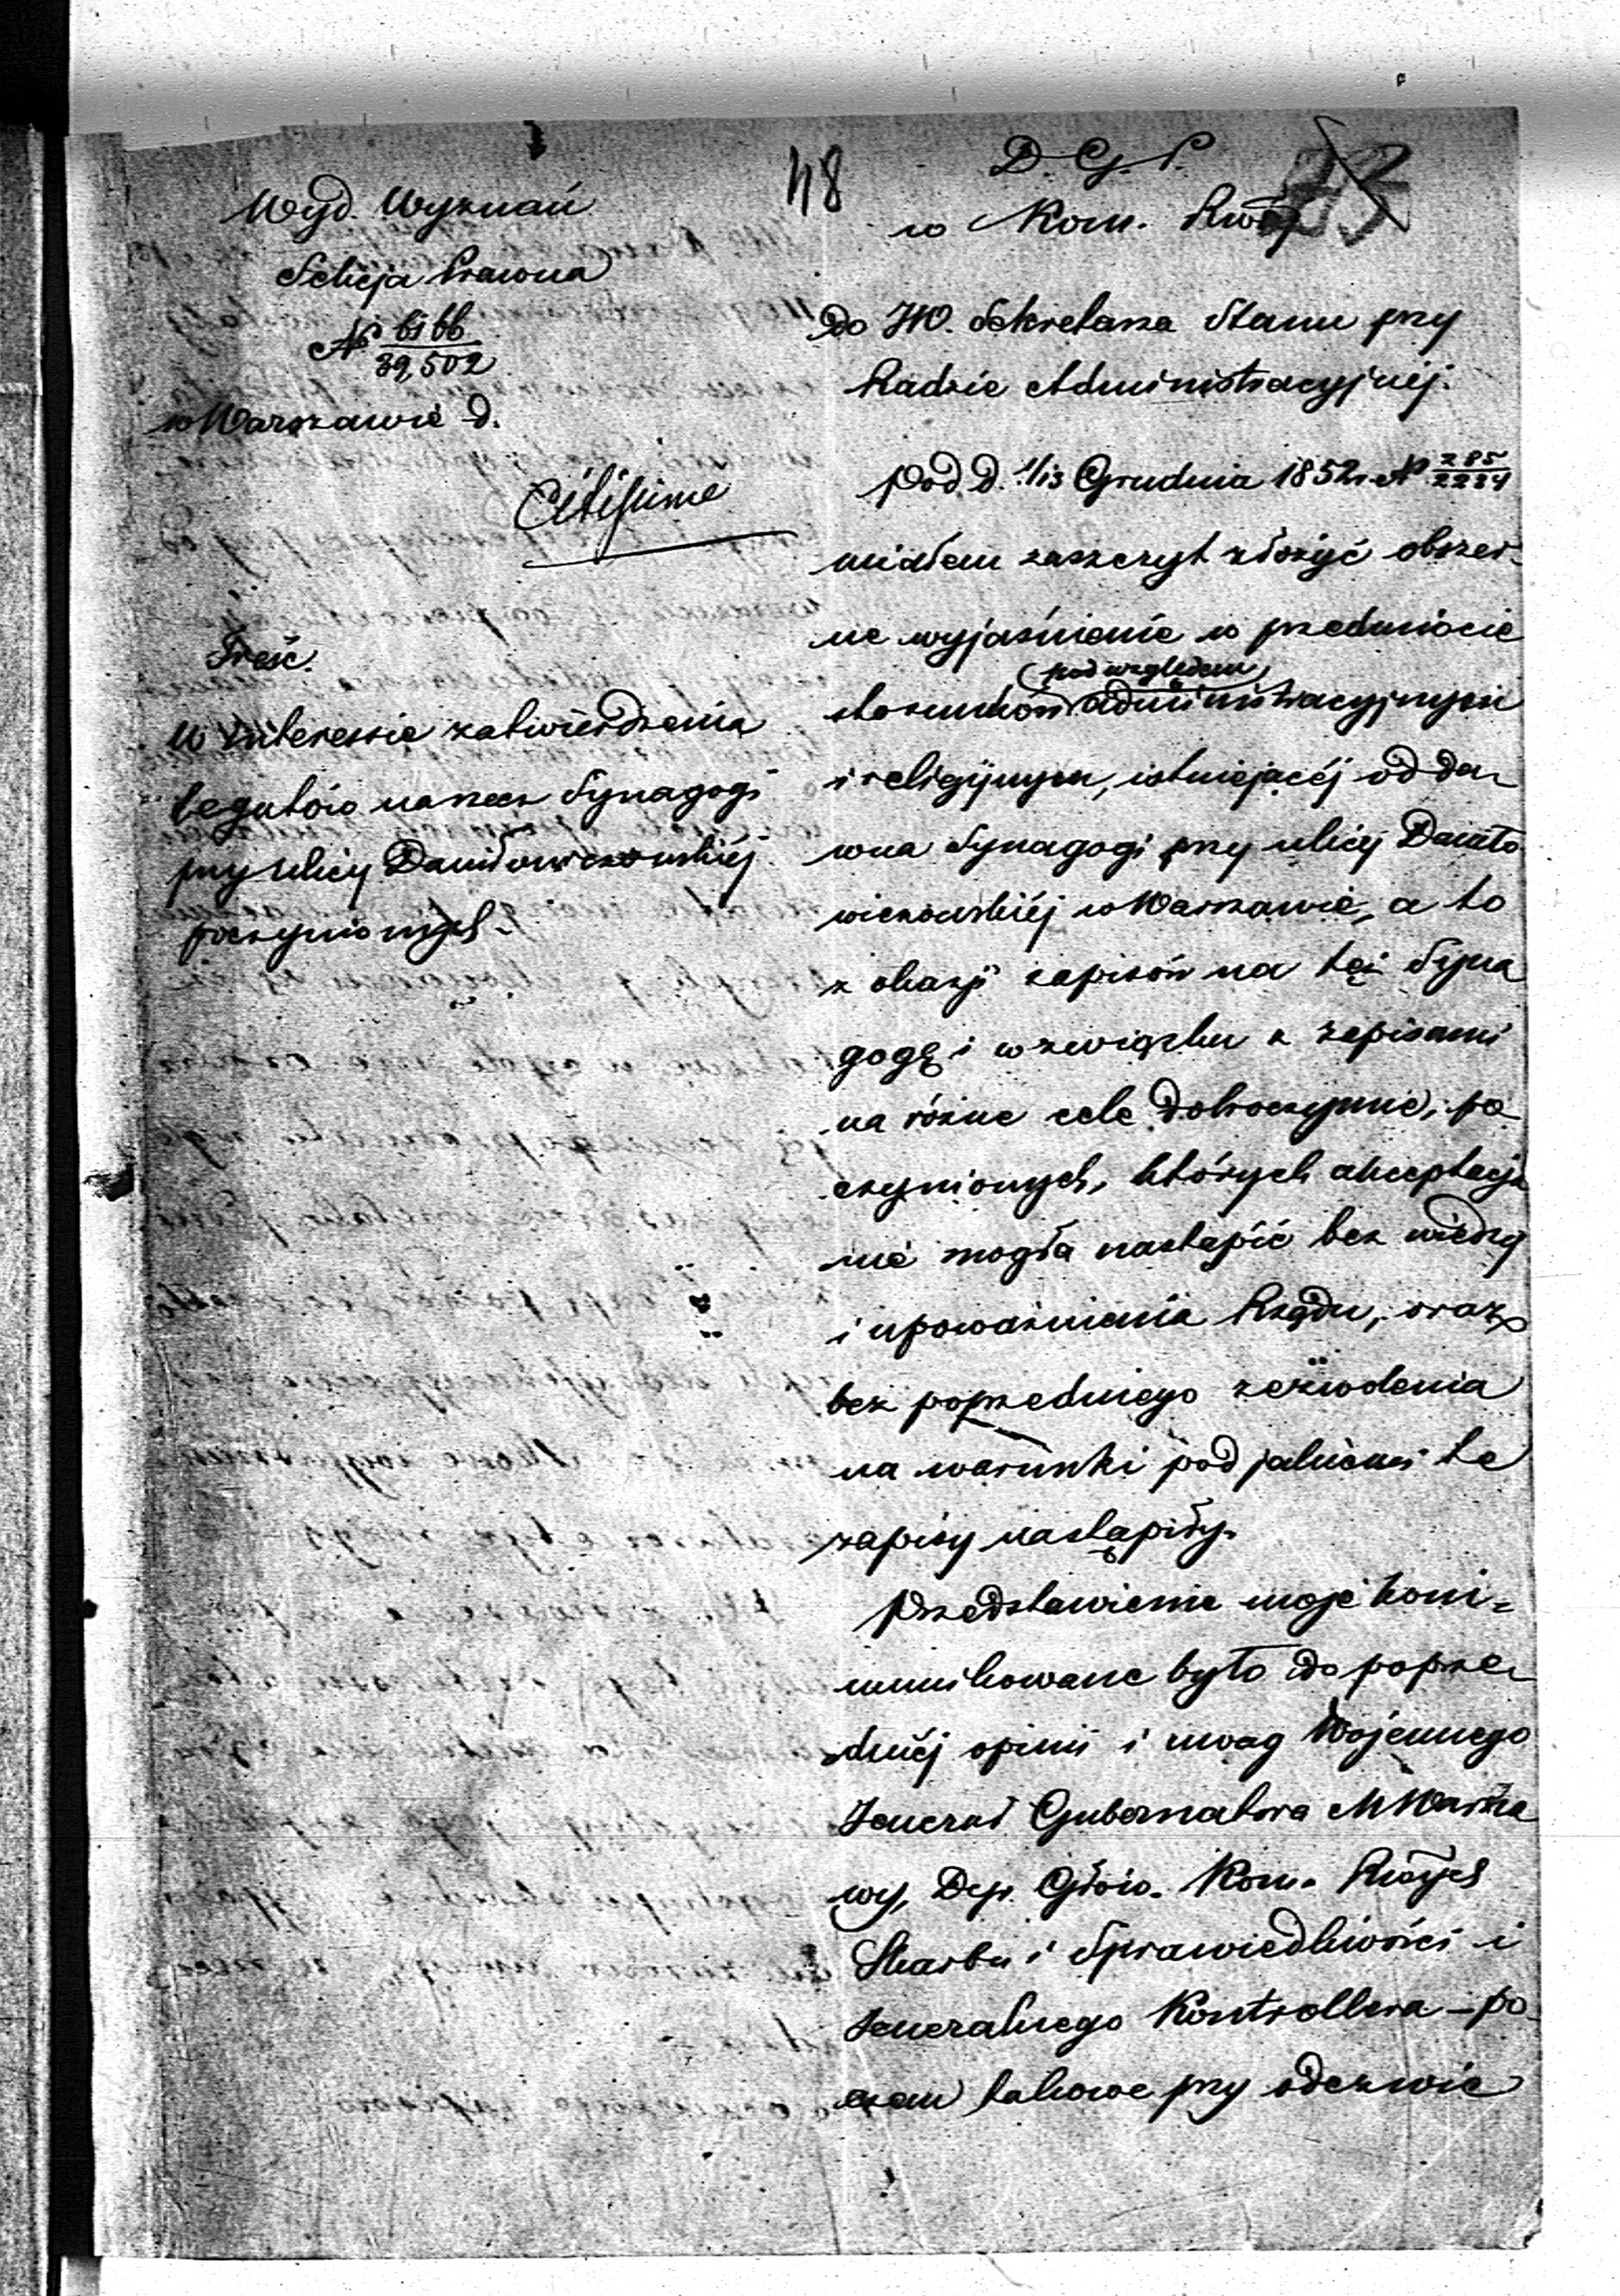 48
D. G. P.
w Kom. Rwej
Wyd. Wyznań
Sekcja Prawna
N 39,502
w Warszawie d.
Citissime
Treść.
W interessie zatwierdzenia
legatów na rzecz Synagogi
przy ulicy Daniłowiczowskiéj
poczynionych.
do JW. Sekretarza Stanu przy
Radzie Administracyjnéj.
Pod d. 1/13 Grudnia 1852 r. N 285/2234
miałem zaszczyt złożyć obszer-
ne wyjaśnienie w przedmiocie
pod względem
stosunków administracyjnym
i religijnym, istniejącéj od da-
wna Synagogi przy ulicy Daniło
wiczowskiéj w Warszawie, a to
z okazji zapisów na tęż Syna
gogę i w związku z zapisami
na różne cele dobroczynne, po-
czynionych, których akceptacja
nie mogła nastąpić bez wiedzy
i upoważnienia Rządu, oraz
bez poprzedniego zezwolenia
na warunki pod jakiemi te
zapisy nastąpiły.
Przedstawienie moje kom-
munikowane było do poprze-
dniéj opinii i uwag Wojennego
Jenerał Gubernatora M Warsza
wy, Dyr. Głów. Kom. Rwych
Skarbu i Sprawiedliwości i
Jeneralnego Kontrollera – po
czem takowe przy odezwie